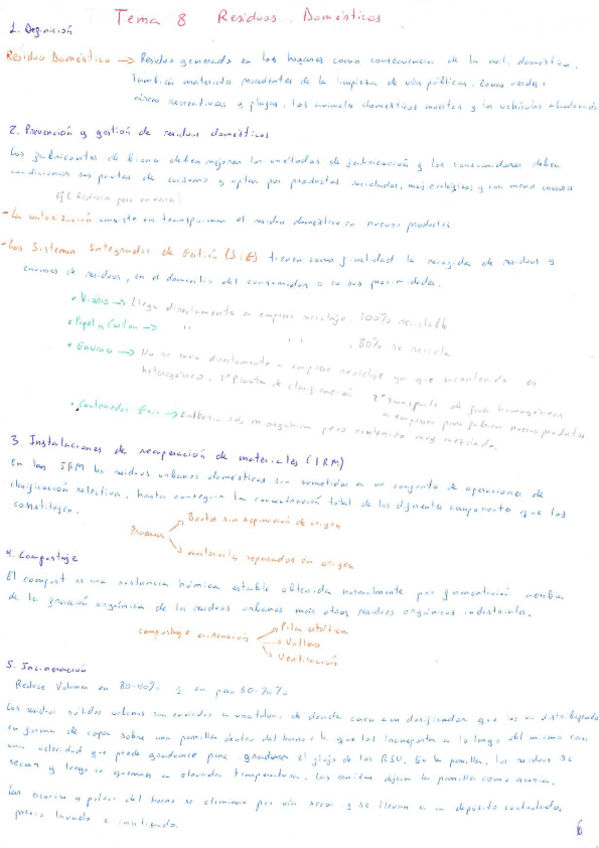 Tema 8 Residuos Domésticos
1. Definición
Residuo Doméstico → Residuo generado en los hogares como consecuencia de la act. doméstica.
También materiales procedentes de la limpieza de vías públicas, zonas verdes,
áreas recreativas y playas, los animales domésticos muertos y los vehículos abandonados
2. Prevención y gestión de residuos domésticos
Los fabricantes de bienes deben mejorar los métodos de fabricación y los consumidores deben
condicionar sus pautas de consumo y optar por productos reciclados, más ecológicos y con menos envases
Ej (
- La valorización consiste en transformar el residuo doméstico en nuevos productos.
- Los Sistemas Integrados de Gestión (SIG) tienen como finalidad la recogida de residuos y
envases de residuos, en el domicilio del consumidor o en sus proximidades.
• Vidrio → Llega directamente a empresa reciclaje. 100% reciclable
• Papel y Cartón → " " " 80% se recicla
• Envases → No se lleva directamente a empresa reciclaje ya que su contenido es
heterogéneo. 1º Planta de clasificación 2º Transporte de
a empresas para fabricar nuevos productos
• Contenedor Gris → pero contenido muy mezclado.
3. Instalaciones de recuperación de materiales (IRM)
En las IRM los residuos urbanos domésticos son sometidos a un conjunto de operaciones de
clasificación selectiva, hasta conseguir la concentración total de los diferentes componentes que los
constituyen.
Procesan → Basuras sin separación de origen
→ materiales separados en origen
4. Compostaje
El compost es una sustancia húmica estable obtenida normalmente por fermentación aerobia
de la fracción orgánica de los residuos urbanos más otros residuos orgánicos industriales.
compostaje → Pila estática
→ Volteo
→ Ventilación
5. Incineración
Reduce Volumen en 80-90% y en peso 60-70%
Los residuos sólidos urbanos son enviados a una tolva, de donde caen a un dosificador que los va distribuyendo
en forma de capa sobre una parrilla dentro del horno la que los transporta a lo largo del mismo con
una velocidad que puede graduarse para graduar el flujo de los RSU. En la parrilla, los residuos se
secan y luego se queman a elevadas temperaturas, las cenizas dejan la parrilla como escoria.
Las escorias o polvo del horno se eliminan por vía seca y se llevan a un depósito controlado
previo lavado e
6